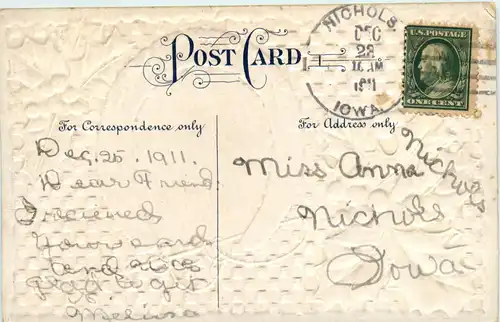 POST CARD
NICHOLS
DEC
28
10 AM
1911
IOWA
U.S. POSTAGE
ONE CENT
For Correspondence only
Dec, 25, 1911.
Dear Friend
I recieved
your card
and was
glad to git
Melissa
For Address only
Miss Anna Nichols
Nichols
Iowa